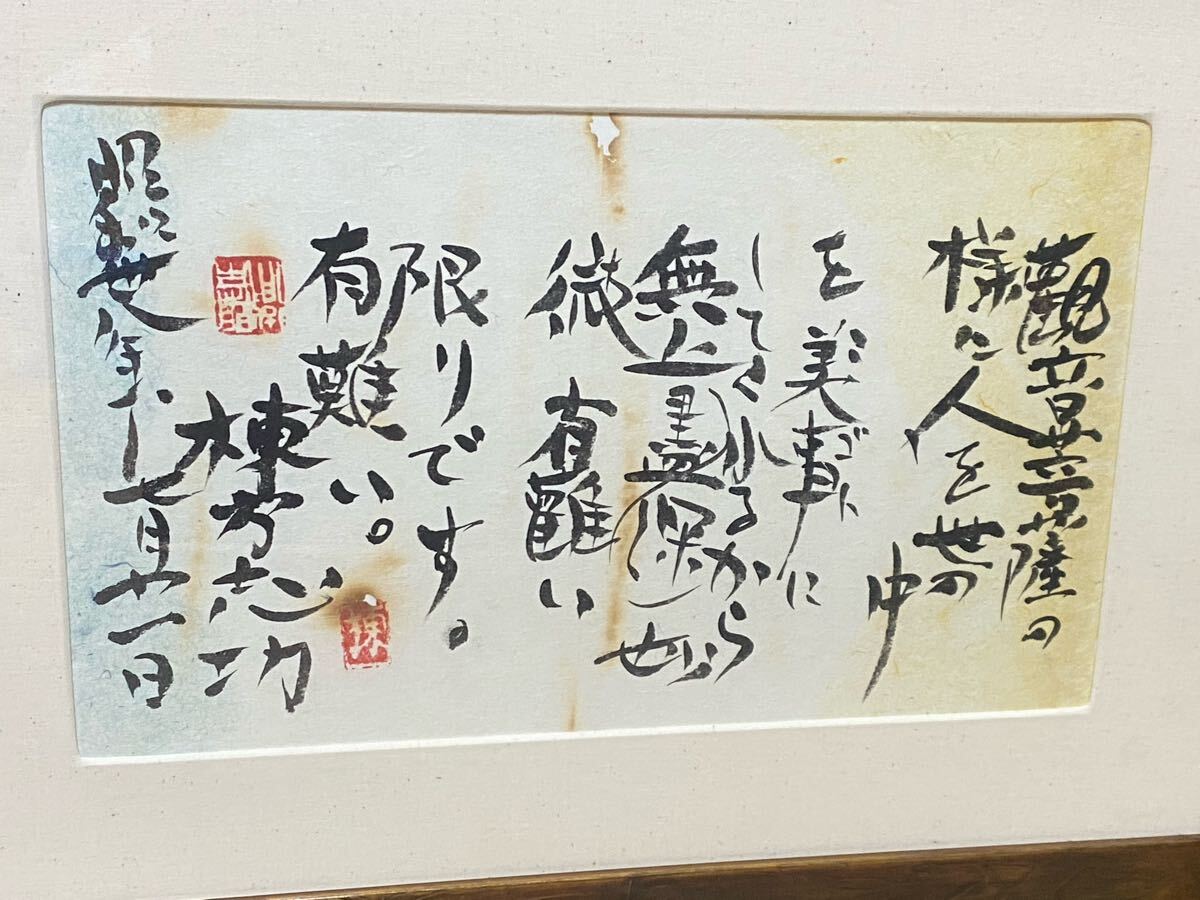 觀音菩薩の
様に人を世の
中
を美事に
してくれるから
無上盡深
微
有難い
限りです。
有難い。
棟方志功
昭世年七月廿一日